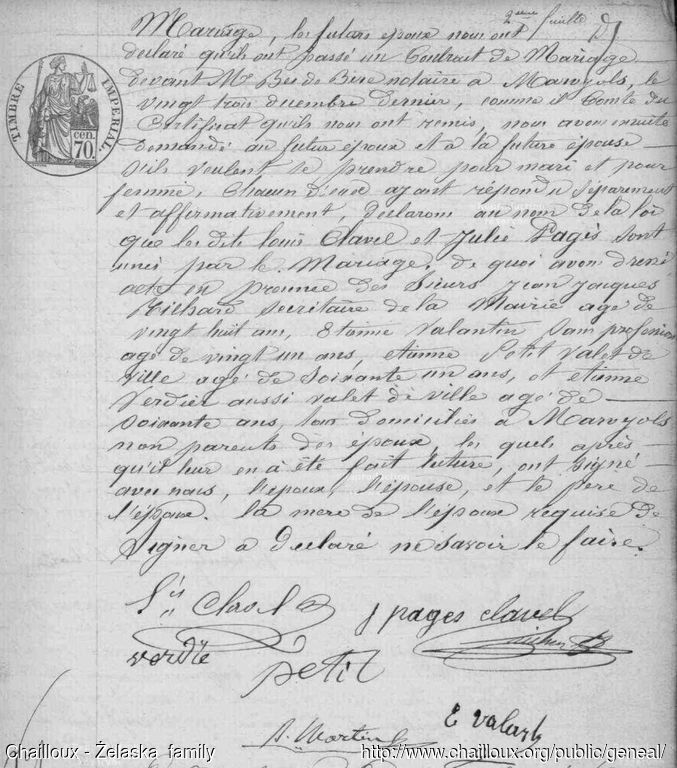 2eme feuille
Mariage, les futurs epoux nous ont
declaré qu'ils ont passé un Contrat de Mariage
devant Me Bes de Berc notaire a Marvejols, le
vingt trois decembre dernier, comme il Conte du
Certificat qu'ils nous ont remis, nous avons ensuite
demandé au futur époux et a la future épouse
s'ils veulent se prendre pour mari et pour
femme, Chacun d'eux ayant répondu Séparement
et affirmativement, Declarons au nom de la loi
que les dits louis Clavel et Julie Pagès sont
unis par le Mariage. de quoi avons dressé
acte en presence des Sieurs Jean Jacques
Richard Secritaire de la Mairie agé de
vingt huit ans, Etienne Valantin Sans profession
agé de vingt un ans, etienne Petit valet de
ville agé de Soixante un ans, et etienne
Verdier aussi valet de ville agé de
Soixante ans, tous domiciliés a Marvejols
non parents des époux, les quels après
qu'il leur en à été fait lecture, ont Signé
avec nous, l'epoux, l'épouse, et le pere de
l'épouse. la mere de l'époux requise de
Signer a declaré ne savoir le faire.
Ls Clavel
J pages clavel
verdie
petit
Martin
E valant
TIMBRE IMPERIAL
70 cen.
Chailloux - Želaska family
http://www.chailloux.org/public/geneal/